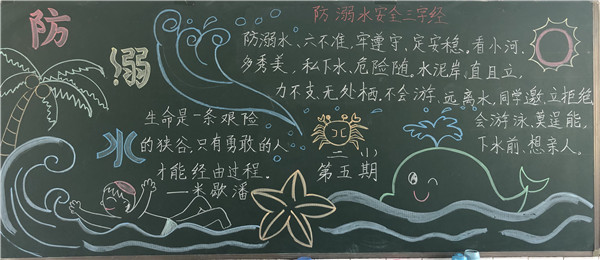 防
溺
水
防溺水安全三字经
防溺水、六不准,牢遵守,定安稳。看小河,
多秀美,私下水,危险随。水泥岸,直且立,
力不支,无处栖。不会游,远离水,同学邀,立拒绝,
会游泳,莫逞能。
下水前,想亲人。
生命是一条艰险
的狭谷,只有勇敢的人
才能经由过程。
——米歇潘
二小
第五期